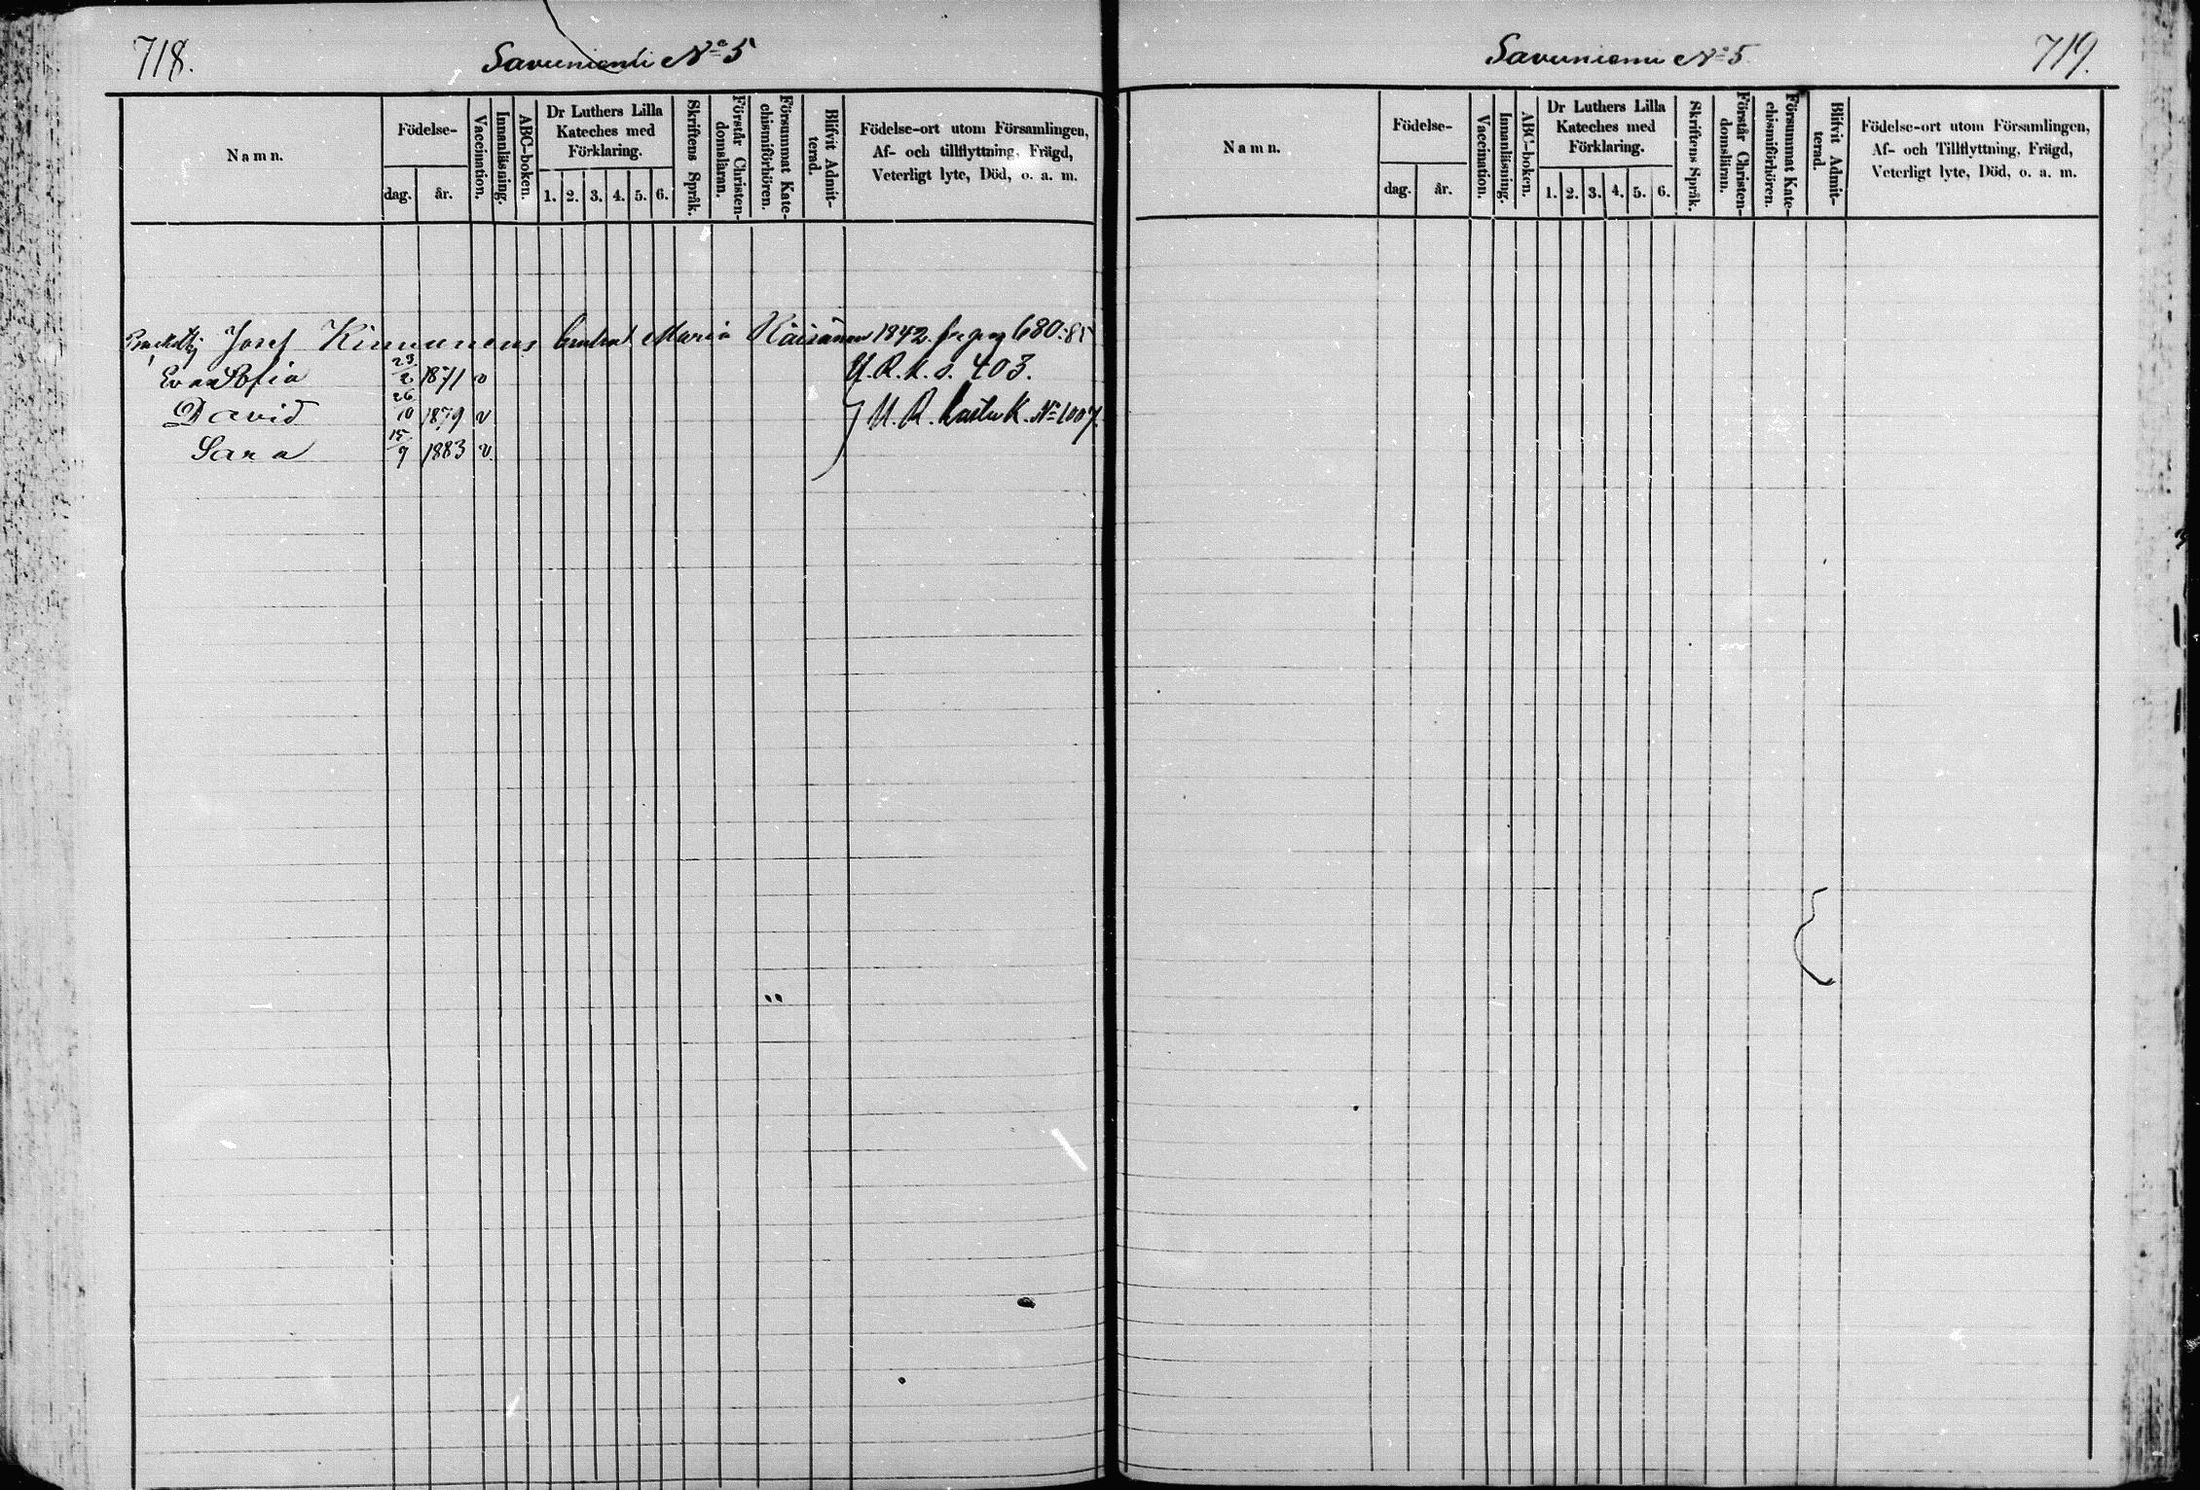 718.
Savuniemi No 5
Namn.
Födelse-
dag.
år.
Vaccination.
Innanläsning.
ABC-boken.
Dr Luthers Lilla
Kateches med
Förklaring.
1. 2. 3. 4. 5. 6.
Skriftens Språk.
Förstår Christen-
domsläran.
Försummat Kate-
chismiförhören.
Blifvit Admit-
terad.
Födelse-ort utom Församlingen,
Af- och tillflyttning, Frägd,
Veterligt lyte, Död, o. a. m.
Josef Kinnunens Maria Räisänen 1842 fr. pag 680:85
Eva Sofia 23/2 1871 v U. R. K. s. 403.
David 26/10 1879 v U. R. K. No 1007.
Sara 15/9 1883 v
Savuniemi No 5
719.
Namn.
Födelse-
dag.
år.
Vaccination.
Innanläsning.
ABC-boken.
Dr Luthers Lilla
Kateches med
Förklaring.
1. 2. 3. 4. 5. 6.
Skriftens Språk.
Förstår Christen-
domsläran.
Försummat Kate-
chismiförhören.
Blifvit Admit-
terad.
Födelse-ort utom Församlingen,
Af- och Tillflyttning, Frägd,
Veterligt lyte, Död, o. a. m.